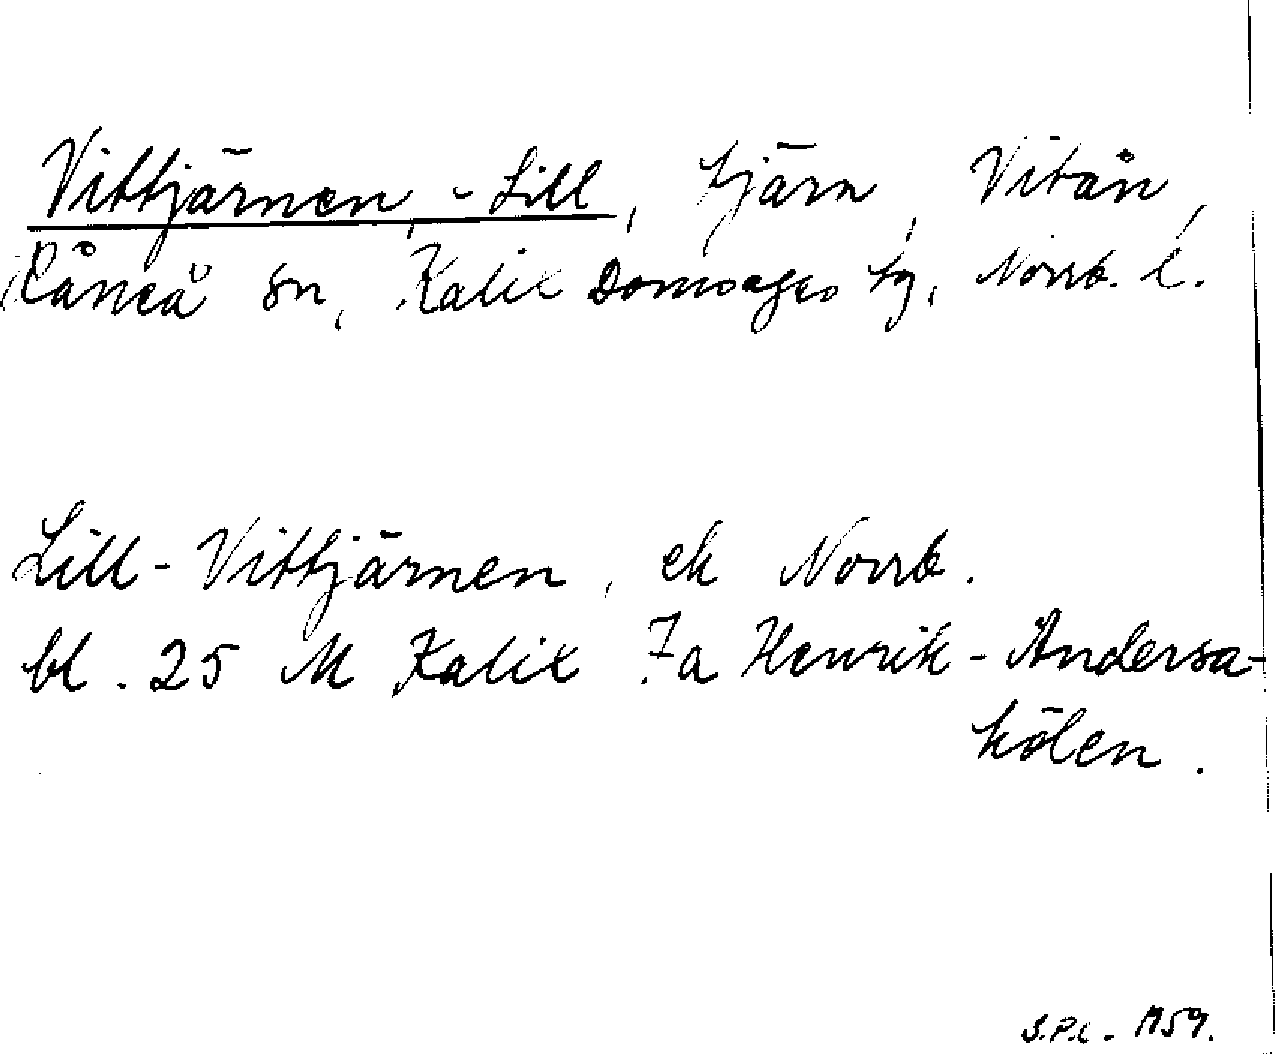 Vittjärnen, -Lill, tjärn, Vitån,
Råneå sn, Kalix Domsagas tg, Norrb. l.
Lill-Vittjärnen, ek Norrb.
bl. 25 M Kalix 7a Henrik-Andersa-
kölen.
S.P.L. 1959.